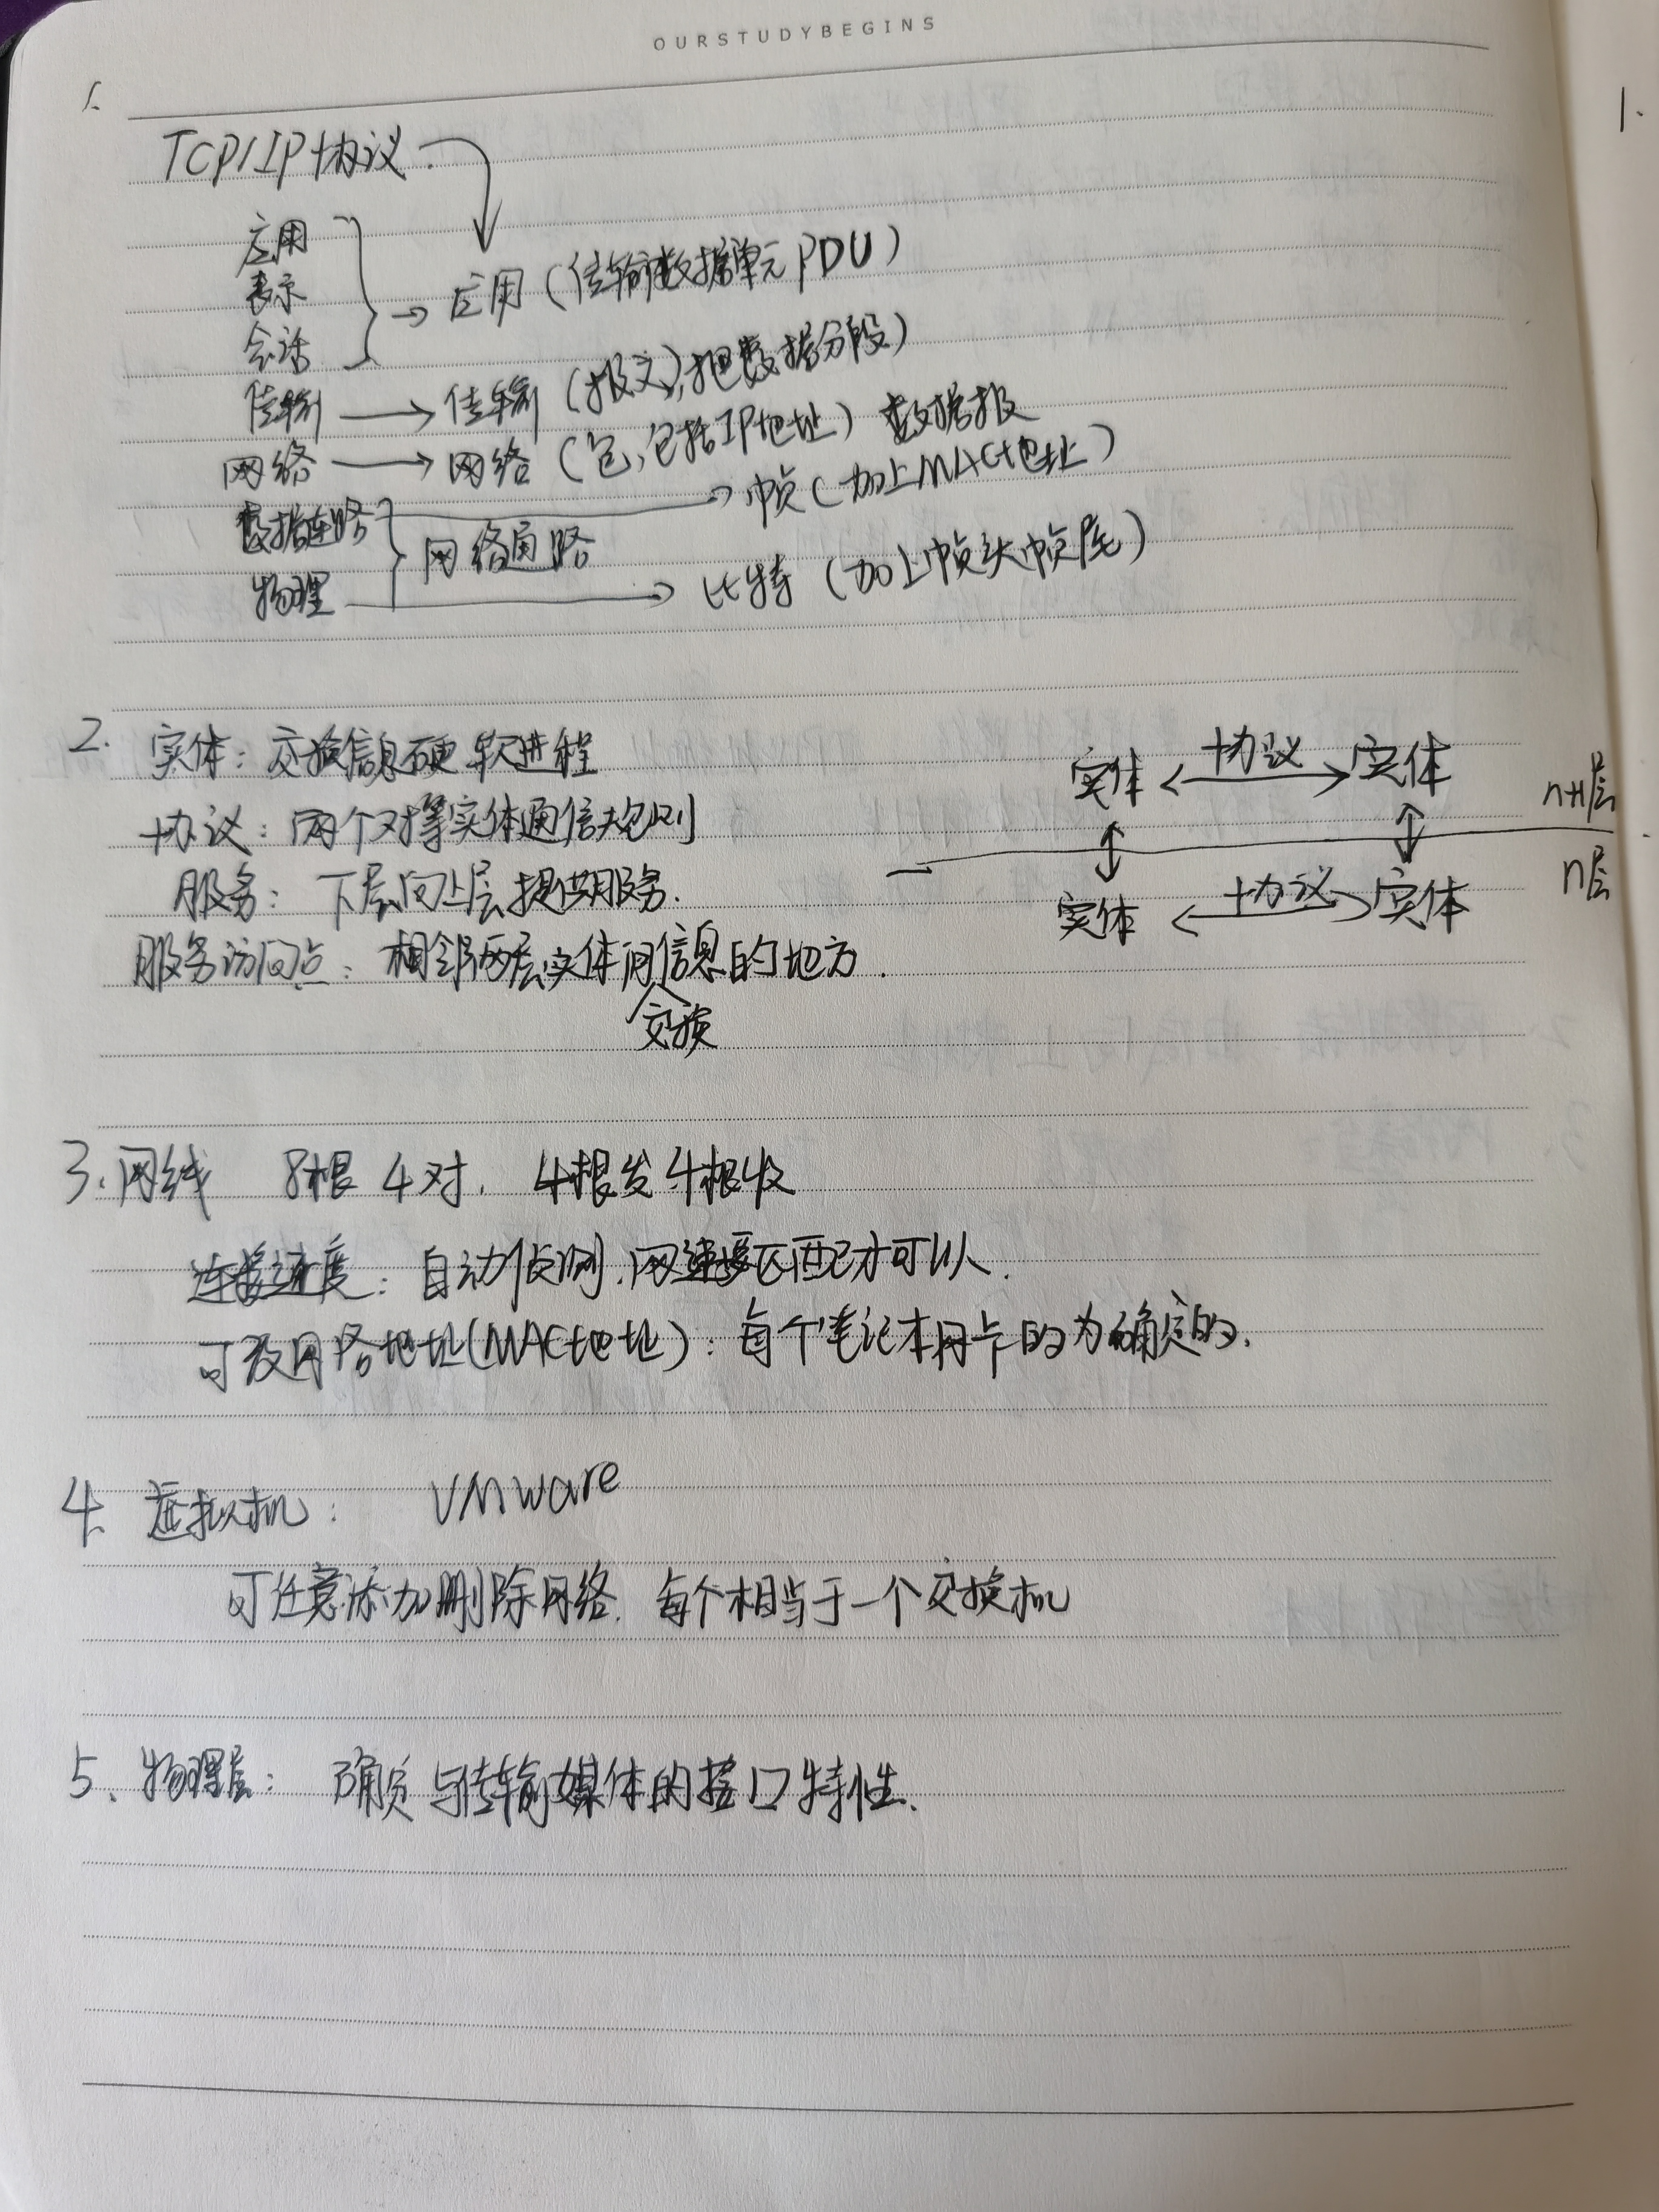 OURSTUDYBEGINS
1.
1.
TCP/IP协议
应用
表示
会话
→ 应用 (传输数据单元 PDU)
传输 → 传输 (报文),把数据分段)
网络 → 网络 (包,包括IP地址) 数据报
数据链路 → 帧 (加上MAC地址)
网络通路
物理 → 比特 (加上帧头帧尾)
2. 实体: 交换信息硬软进程
协议: 两个对等实体通信规则
服务: 下层向上层提供服务.
服务访问点: 相邻两层实体间交换信息的地方.
实体 ↔ 协议 实体 n+1层
实体 ↔ 协议 实体 n层
3. 网线 8根 4对. 4根发 4根收
连接速度: 自动侦测.网速要匹配才可以.
网络地址(MAC地址): 每个笔记本网卡的为确定的.
4. 虚拟机: VMware
可任意添加删除网络. 每个相当于一个交换机
5. 物理层: 确定与传输媒体的接口特性.